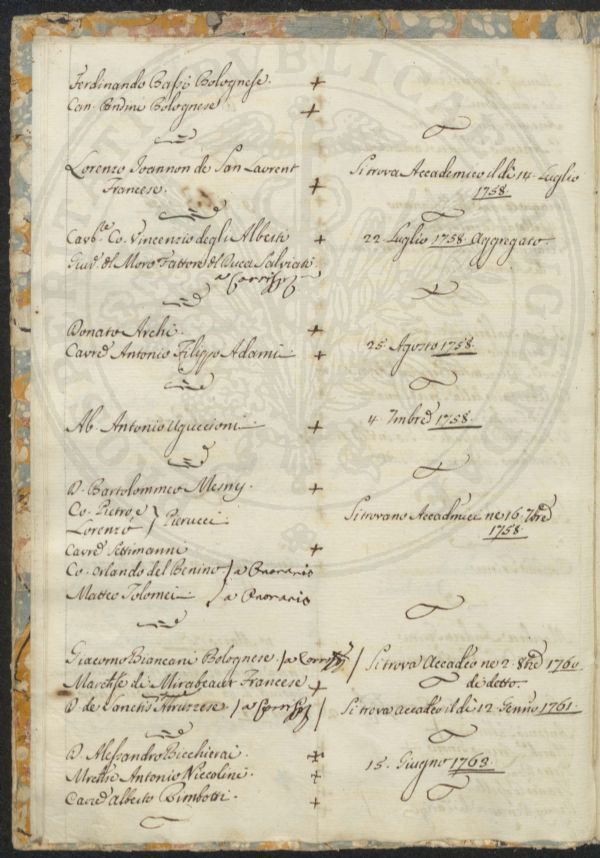 Ferdinando Bassi Bolognese. +
Can. Bndini Bolognese +
Lorenzo Joannon de San Laurent Si trova Accademico il dì 14. Luglio
Francese. + 1758.
Cav.e Co. Vincenzio degli Alberti + 22 Luglio 1758. Aggregato.
Giud. del Moro Fattore del Duca Salviati
a Corrisp.
Donato Archi. +
Cavre. Antonio Filippo Adami + 25 Agosto 1758.
Ab. Antonio Uguccioni + 4 7mbre 1758.
D. Bartolommeo Mesny. +
Co. Pietro, e
Lorenzo } Pierucci Si trovano Accadmici ne 16. 7bre
1758.
Cavre Settimanni +
Co. Orlando del Benino / a Onorario
Matteo Tolomei / a Onorario
Giacomo Biancani Bolognese. / a Corrisp. / Si trova Accadeo ne 2. 8bre 1760
Marchse di Mirabeau Francese + di detto.
D. de Sanctis Abruzzese / a Corrisp. / Si trova accadeo il di 12. Genno 1761.
D. Alessandro Bicchierai. +
Mrchse Antonio Niccolini. + 15. Giugno 1763.
Cavre Alberto Bimbotti. +